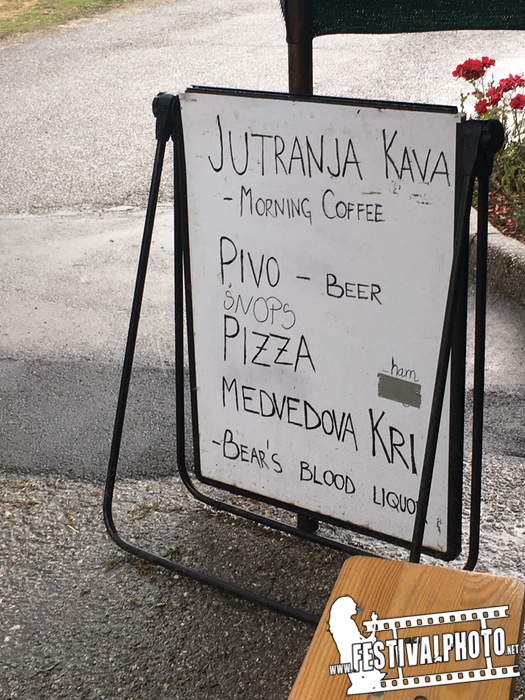 JUTRANJA KAVA
- MORNING COFFEE
PIVO - BEER
ŠNOPS
PIZZA
ham
MEDVEDOVA KRI
- BEAR'S BLOOD LIQUO
WWW.FESTIVALPHOTO.NET